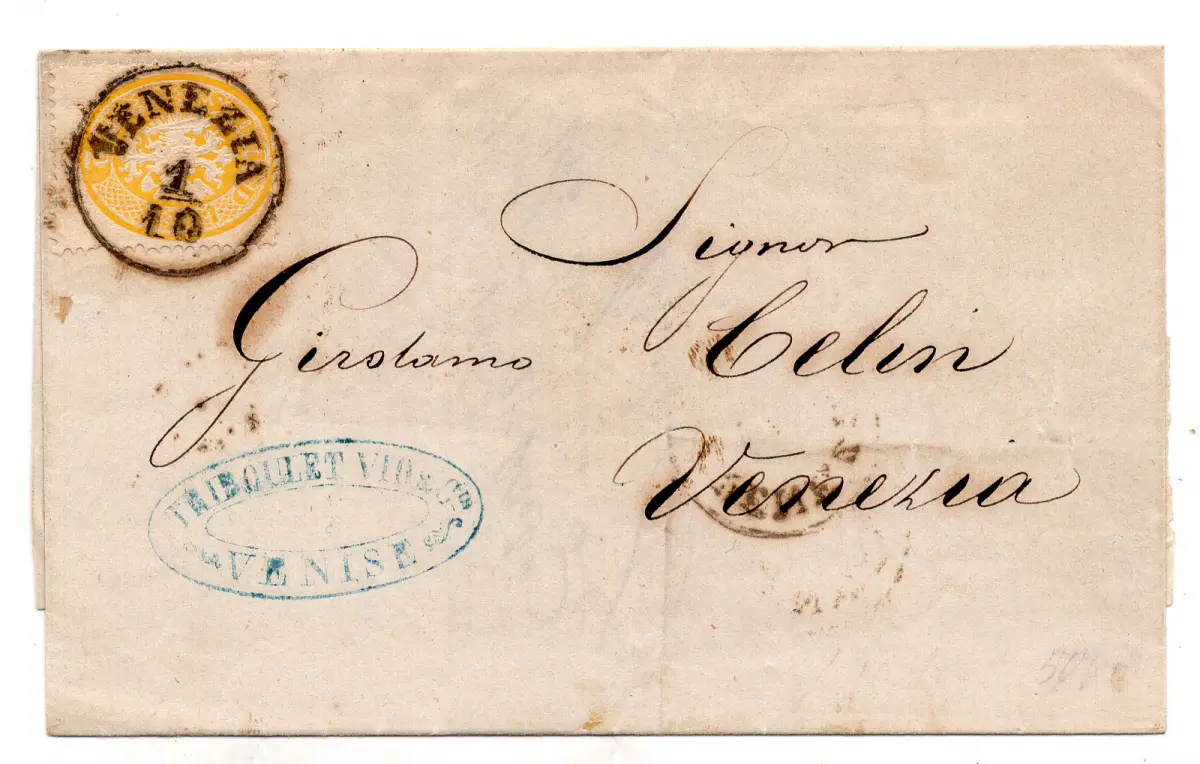 VENEZIA
1
10
Signor
Girolamo Celin
Venezia
TRIBOULET VIO & Co.
VENISE